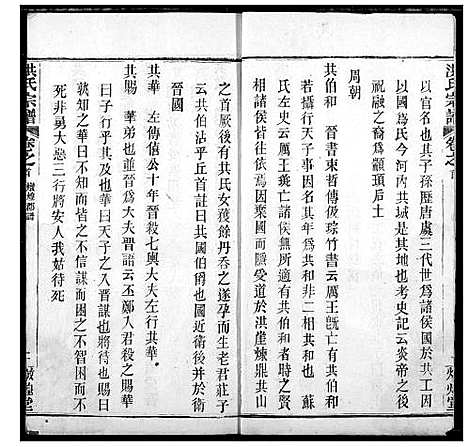 洪氏宗譜
卷之首
以官名也其子孫歷唐虞三代世爲諸侯國於共工因
以國爲氏今河內共城是其地也考史記云炎帝之後
祝融之裔爲顓頊后
周朝
共伯和 晉書束晳傳優琮竹書云厲王旣亡有共伯和
者攝行天子事因名其年爲共和非二相共和也 蘇
氏左史云厲王斃亡諸侯無所適有共伯和者時之賢
相諸侯皆往依焉因衆國而爲愛道於洪崖煉鼎共山
之首厥後有共氏女獲餘丹吞之遂孕而生老君莊子
云共伯沾乎丘首註曰共國伯也國近衛後并於衛
晉國
共華 左傳僖公十年晉殺七輿大夫左行共華
共賜 華弟也並晉爲大夫晉語云丕鄭入君殺之賜華
曰子行乎其及也華曰天子之入吾謀也將待也賜曰
孰知之華曰不知而皆之不信謀而困之不智困而不
死非勇大惡三行將安入我姑待死
洪氏宗譜
卷之首 燉煌郡譜
二 燉煌堂